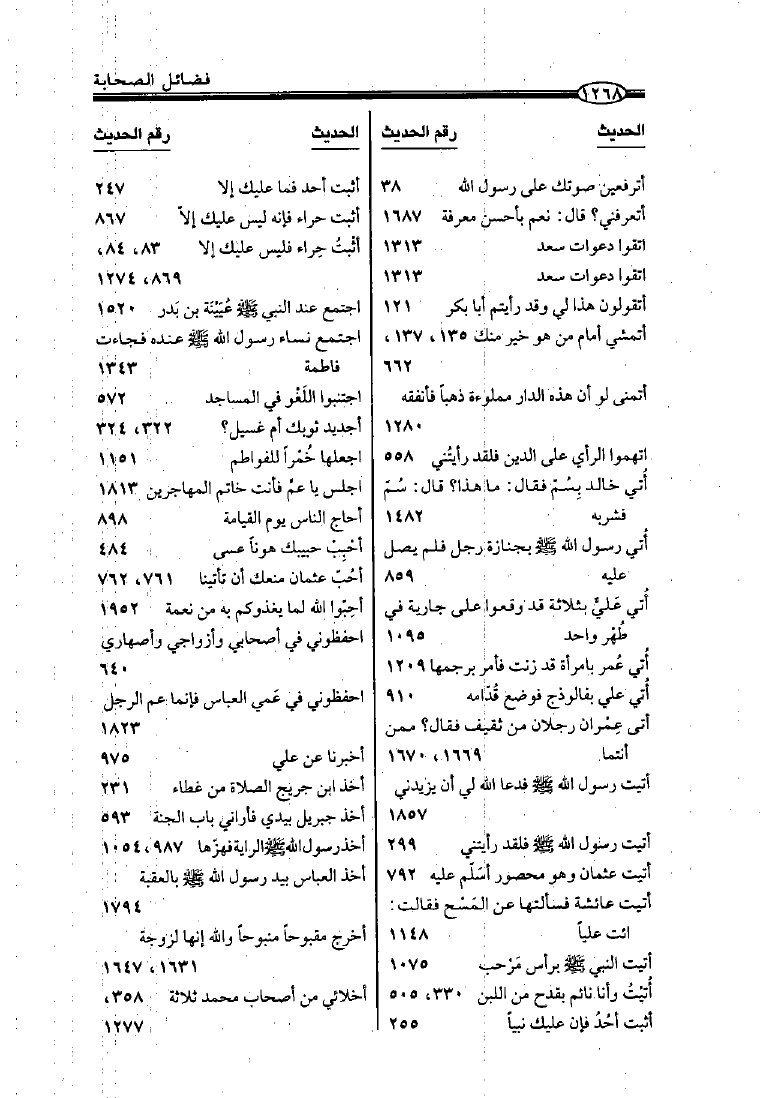 فضائل الصحابة
١٢٦٨
الحديث رقم الحديث
أترفعين صوتك على رسول الله ٣٨
أتعرفني؟ قال: نعم بأحسن معرفة ١٦٨٧
اتقوا دعوات سعد ١٣١٣
اتقوا دعوات سعد ١٣١٣
أتقولون هذا لي وقد رأيتم أبا بكر ١٢١
أتمشي أمام من هو خير منك ١٣٥، ١٣٧،
٦٦٢
أتمنى لو أن هذه الدار مملوءة ذهباً فأنفقه
١٢٨٠
اتهموا الرأي على الدين فلقد رأيتُني ٥٥٨
أُتي خالد بِسُمّ فقال: ما هذا؟ قال: سُمّ
فشربه ١٤٨٢
أُتي رسول الله ﷺ بجنازة رجل فلم يصل
عليه ٨٥٩
أُتي عَليٌّ بثلاثة قد وقعوا على جارية في
طُهْر واحد ١٠٩٥
أُتي عُمر بامرأة قد زنت فأمر برجمها ١٢٠٩
أُتي علي بفالوذج فوضع قُدّامه ٩١٠
أتى عِمْران رجلان من ثقيف فقال؟ ممن
أنتما ١٦٦٩، ١٦٧٠
أتيت رسول الله ﷺ فدعا الله لي أن يزيدني
١٨٥٧
أتيت رسول الله ﷺ فلقد رأيتني ٢٩٩
أتيت عثمان وهو محصور أسَلّم عليه ٧٩٢
أتيت عائشة فسألتها عن المَسْح فقالت:
ائت علياً ١١٤٨
أتيت النبي ﷺ برأس مَرْحب ١٠٧٥
أُتيْتُ وأنا نائم بقدح من اللبن ٣٣٠، ٥٠٥
أثبت أحُدُ فإن عليك نبياً ٢٥٥
الحديث رقم الحديث
أثبت أحد فما عليك إلا ٢٤٧
أثبت حراء فإنه ليس عليك إلاّ ٨٦٧
أثْبتُ حِراء فليس عليك إلا ٨٣، ٨٤،
٨٦٩، ١٢٧٤
اجتمع عند النبي ﷺ عُيَيْنَة بن بَدر ١٥٢٠
اجتمع نساء رسول الله ﷺ عنده فجاءت
فاطمة ١٣٤٣
اجتنبوا اللَغْو في المساجد ٥٧٢
أجديد ثوبك أم غسيل؟ ٣٢٢، ٣٢٤
اجعلها خُمْراً للفواطم ١١٥١
اجلس يا عمّ فأنت خاتم المهاجرين ١٨١٣
أحاج الناس يوم القيامة ٨٩٨
أحْبِبْ حبيبك هوناً عسى ٤٨٤
أحُبّ عثمان منعك أن تأتينا ٧٦١، ٧٦٢
أحِبّوا الله لما يغذوكم به من نعمة ١٩٥٢
احفظوني في أصحابي وأزواجي وأصهاري
٦٤٠
احفظوني في عَمي العباس فإنما عم الرجل
١٨٢٣
أخبرنا عن علي ٩٧٥
أخذ ابن جريج الصلاة من عطاء ٢٣١
أخذ جبريل بيدي فأراني باب الجنة ٥٩٣
أخذ رسول الله ﷺ الراية فهزّها ٩٨٧، ١٠٥٤
أخذ العباس بيد رسول الله ﷺ بالعقبة
١٧٩٤
أخرج مقبوحاً منبوحاً والله إنها لزوجة
١٦٣١، ١٦٤٧
أخلائي من أصحاب محمد ثلاثة ٣٥٨،
١٢٧٧